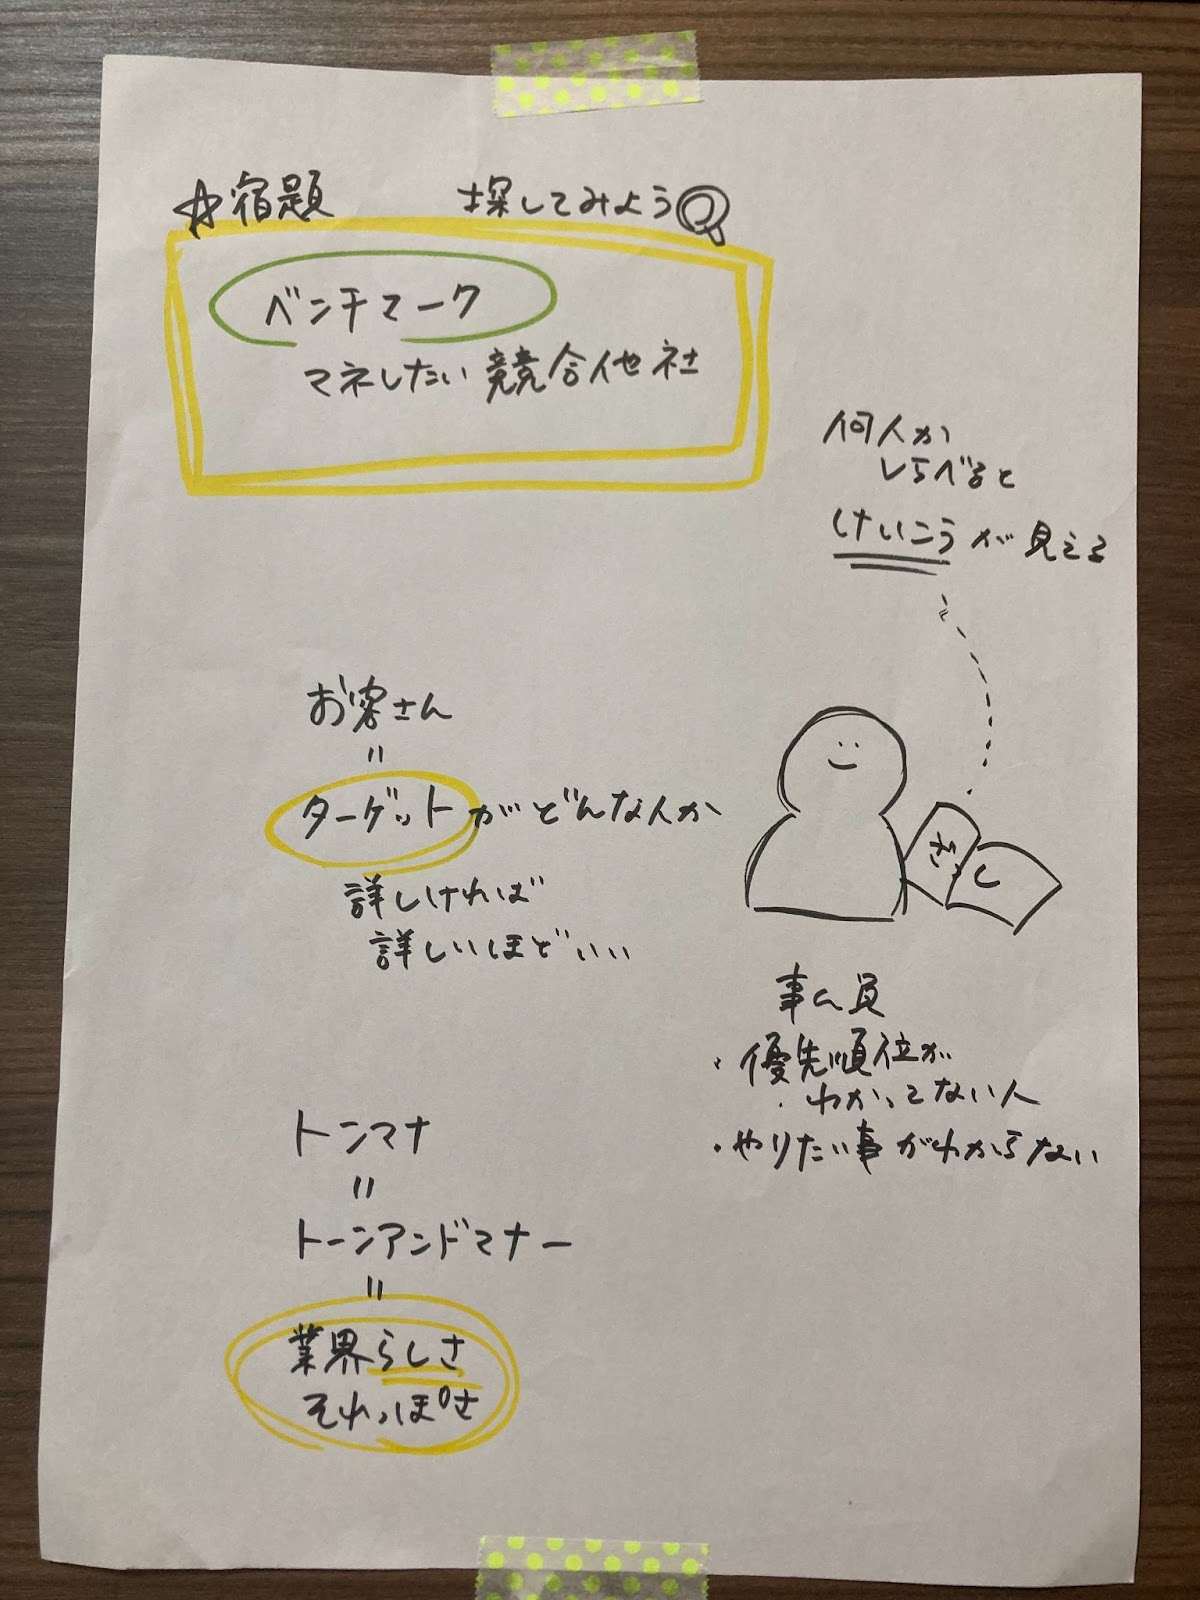 ☆宿題 探してみよう
ベンチマーク
マネしたい競合他社
何人か
しらべると
けいこうが見える
お客さん
＝
ターゲットがどんな人か
詳しければ
詳しいほどいい
ざっし
事ム員
・優先順位が
わかってない人
・やりたい事がわからない
トンマナ
＝
トーンアンドマナー
＝
業界らしさ
それっぽさ